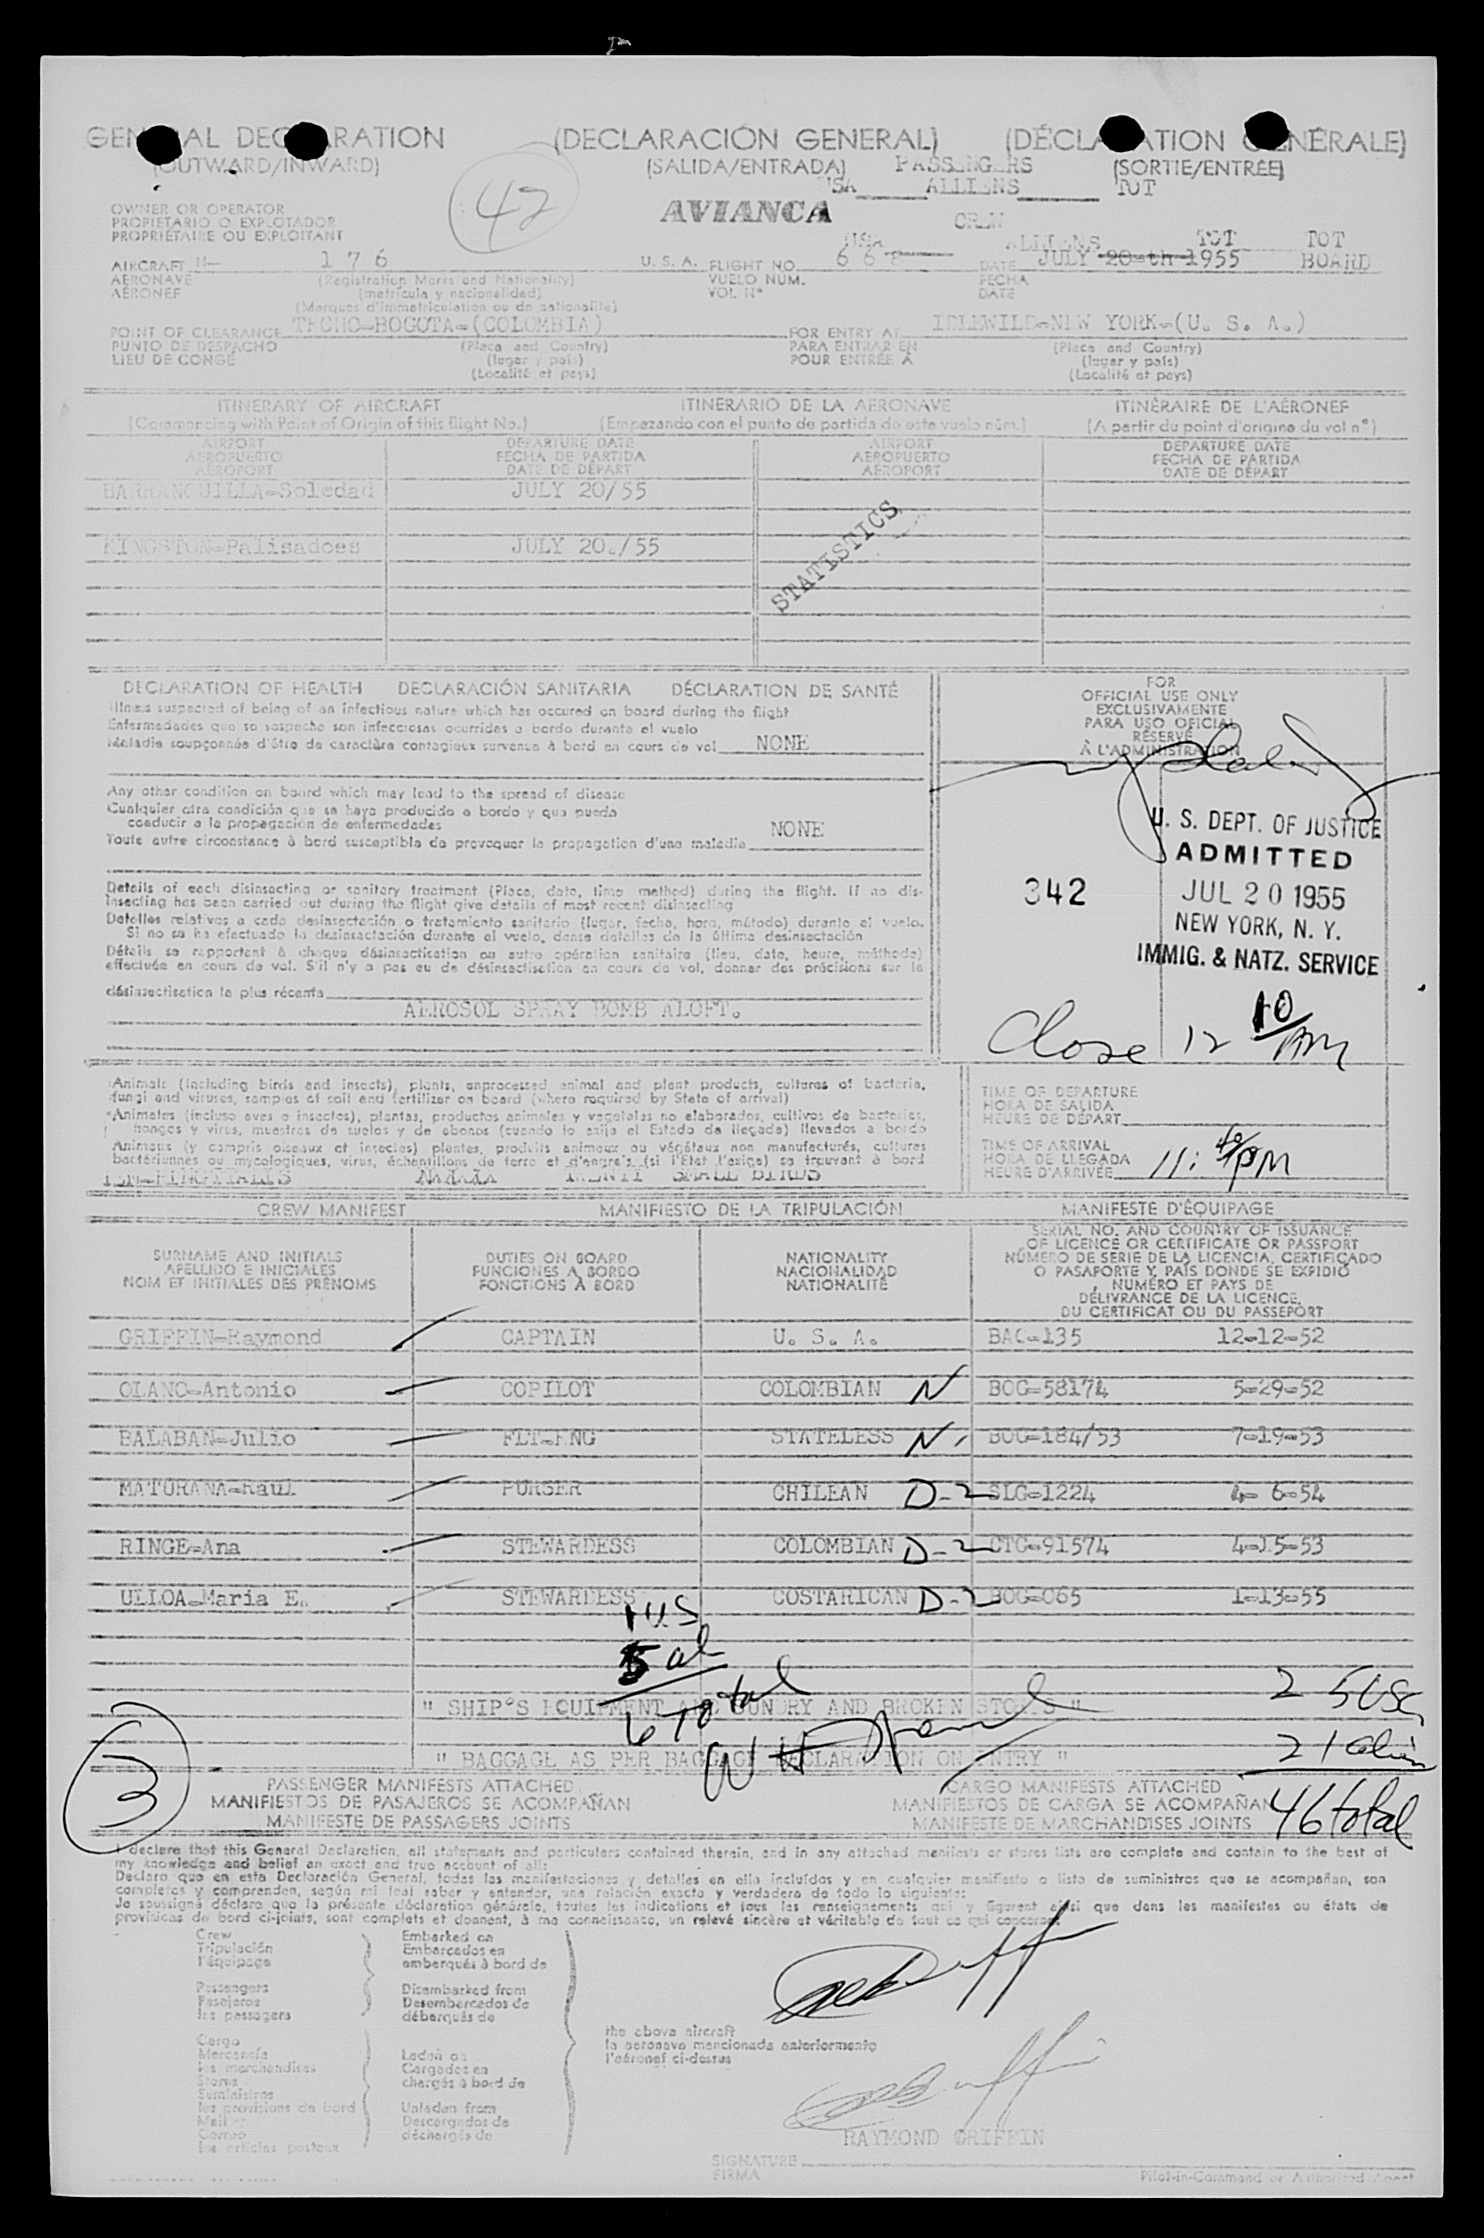 GENERAL DECLARATION (DECLARACIÓN GENERAL) (DÉCLARATION GÉNÉRALE)
(OUTWARD/INWARD) (SALIDA/ENTRADA) PASSENGERS (SORTIE/ENTRÉE)
USA ALLIENS TOT
42
OWNER OR OPERATOR AVIANCA CREW
PROPIETARIO O EXPLOTADOR
PROPRIÉTAIRE OU EXPLOITANT USA ALLIENS TOT TOT
AIRCRAFT N- 176 U.S.A. FLIGHT NO. 668 DATE JULY 20-th-1955 BOARD
AERONAVE (Registration Marks and Nationality) VUELO NUM. FECHA
AÉRONEF (matrícula y nacionalidad) VOL N° DATE
(Marques d'immatriculation ou de nationalité)
POINT OF CLEARANCE TECHO-BOGOTA-(COLOMBIA) FOR ENTRY AT IDLEWILD-NEW YORK-(U. S. A.)
PUNTO DE DESPACHO (Place and Country) PARA ENTRAR EN (Place and Country)
LIEU DE CONGÉ (lugar y país) POUR ENTRÉE À (lugar y país)
(Localité et pays) (Localité et pays)
ITINERARY OF AIRCRAFT ITINERARIO DE LA AERONAVE ITINÉRAIRE DE L'AÉRONEF
(Commencing with Point of Origin of this flight No.) (Empezando con el punto de partida de este vuelo núm.) (A partir du point d'origine du vol n°)
AIRPORT DEPARTURE DATE AIRPORT DEPARTURE DATE
AEROPUERTO FECHA DE PARTIDA AEROPUERTO FECHA DE PARTIDA
AÉROPORT DATE DE DÉPART AÉROPORT DATE DE DÉPART
BARRANQUILLA-Soledad JULY 20/55
KINGSTON-Palisadoes JULY 20./55
STATISTICS
DECLARATION OF HEALTH DECLARACIÓN SANITARIA DÉCLARATION DE SANTÉ
Illness suspected of being of an infectious nature which has occured on board during the flight
Enfermedades que se sospecha son infecciosas ocurridas a bordo durante el vuelo
Maladie soupçonnée d'être de caractère contagieux survenue à bord en cours de vol NONE
Any other condition on board which may lead to the spread of disease
Cualquier otra condición que se haya producido a bordo y que pueda
conducir a la propagación de enfermedades
Toute autre circonstance à bord susceptible de provoquer la propagation d'une maladie NONE
Details of each disinsecting or sanitary treatment (Place, date, time, method) during the flight. If no dis-
insecting has been carried out during the flight give details of most recent disinsecting
Detalles relativos a cada desinsectación o tratamiento sanitario (lugar, fecha, hora, método) durante el vuelo.
Si no se ha efectuado la desinsectación durante el vuelo, dense detalles de la última desinsectación
Détails se rapportant à chaque désinsectisation ou autre opération sanitaire (lieu, date, heure, méthode)
effectuée en cours de vol. S'il n'y a pas eu de désinsectisation en cours de vol, donner des précisions sur la
désinsectisation la plus récente
AEROSOL SPRAY BOMB ALOFT.
FOR
OFFICIAL USE ONLY
EXCLUSIVAMENTE
PARA USO OFICIAL
RÉSERVÉ
À L'ADMINISTRATION
U. S. DEPT. OF JUSTICE
ADMITTED
342 JUL 20 1955
NEW YORK, N. Y.
IMMIG. & NATZ. SERVICE
Close 12 10/PM
Animals (including birds and insects), plants, unprocessed animal and plant products, cultures of bacteria,
fungi and viruses, samples of soil and fertilizer on board (where required by State of arrival)
Animales (incluso aves e insectos), plantas, productos animales y vegetales no elaborados, cultivos de bacterias,
hongos y virus, muestras de suelos y de abonos (cuando lo exija el Estado de llegada) llevados a bordo
Animaux (y compris oiseaux et insectes) plantes, produits animaux ou végétaux non manufacturés, cultures
bactériennes ou mycologiques, virus, échantillons de terre et d'engrais (si l'État l'exige) se trouvant à bord
SMALL BIRDS
TIME OF DEPARTURE
HORA DE SALIDA
HEURE DE DÉPART
TIME OF ARRIVAL
HORA DE LLEGADA
HEURE D'ARRIVÉE 11:40 PM
CREW MANIFEST MANIFIESTO DE LA TRIPULACIÓN MANIFESTE D'ÉQUIPAGE
SURNAME AND INITIALS DUTIES ON BOARD NATIONALITY SERIAL NO. AND COUNTRY OF ISSUANCE
APELLIDO E INICIALES FUNCIONES A BORDO NACIONALIDAD OF LICENCE OR CERTIFICATE OR PASSPORT
NOM ET INITIALES DES PRÉNOMS FONCTIONS À BORD NATIONALITÉ NÚMERO DE SERIE DE LA LICENCIA, CERTIFICADO
O PASAPORTE Y PAÍS DONDE SE EXPIDIÓ
NUMÉRO ET PAYS DE
DÉLIVRANCE DE LA LICENCE,
DU CERTIFICAT OU DU PASSEPORT
GRIFFIN-Raymond CAPTAIN U. S. A. BAC-135 12-12-52
OLANO-Antonio COPILOT COLOMBIAN N BOG-58174 5-29-52
BALABAN-Julio FLT-ENG STATELESS N BOG-184/53 7-19-53
MATURANA-Raul PURSER CHILEAN D-2 SLG-1224 4- 6-54
RINGE-Ana STEWARDESS COLOMBIAN D-2 CTG-91574 4-15-53
ULLOA-Maria E. STEWARDESS COSTARICAN D-2 BOG-065 1-13-55
1 US
5 al
6 Total
" SHIP'S EQUIPMENT AND SUNDRY AND BROKEN STORES "
25 USC
" BAGGAGE AS PER BAGGAGE DECLARATION ON ENTRY "
21 alien
46 total
3
PASSENGER MANIFESTS ATTACHED CARGO MANIFESTS ATTACHED
MANIFIESTOS DE PASAJEROS SE ACOMPAÑAN MANIFIESTOS DE CARGA SE ACOMPAÑAN
MANIFESTE DE PASSAGERS JOINTS MANIFESTE DE MARCHANDISES JOINTS
I declare that this General Declaration, all statements and particulars contained therein, and in any attached manifests or stores lists are complete and contain to the best of
my knowledge and belief an exact and true account of all:
Declaro que en esta Declaración General, todas las manifestaciones y detalles en ella incluidos y en cualquier manifiesto o lista de suministros que se acompañan, son
completos y comprenden, según mi leal saber y entender, una relación exacta y verdadera de todo lo siguiente:
Je soussigné déclare que la présente déclaration générale, toutes les indications et tous les renseignements qui y figurent ainsi que dans les manifestes ou états de
provisions de bord ci-joints, sont complets et donnent, à ma connaissance, un relevé sincère et véritable de tout ce qui concerne:
Crew Embarked on
Tripulación Embarcados en
l'équipage embarqués à bord de
Passengers Disembarked from
Pasajeros Desembarcados de
les passagers débarqués de
the above aircraft
la aeronave mencionada anteriormente
l'aéronef ci-dessus
Cargo
Mercancía Laden on
les marchandises Cargados en
Stores chargés à bord de
Suministros
les provisions de bord Unladen from
Mail Descargados de
Correo déchargés de
les articles postaux
RAYMOND GRIFFIN
SIGNATURE
FIRMA
Pilot-in-Command or Authorized Agent